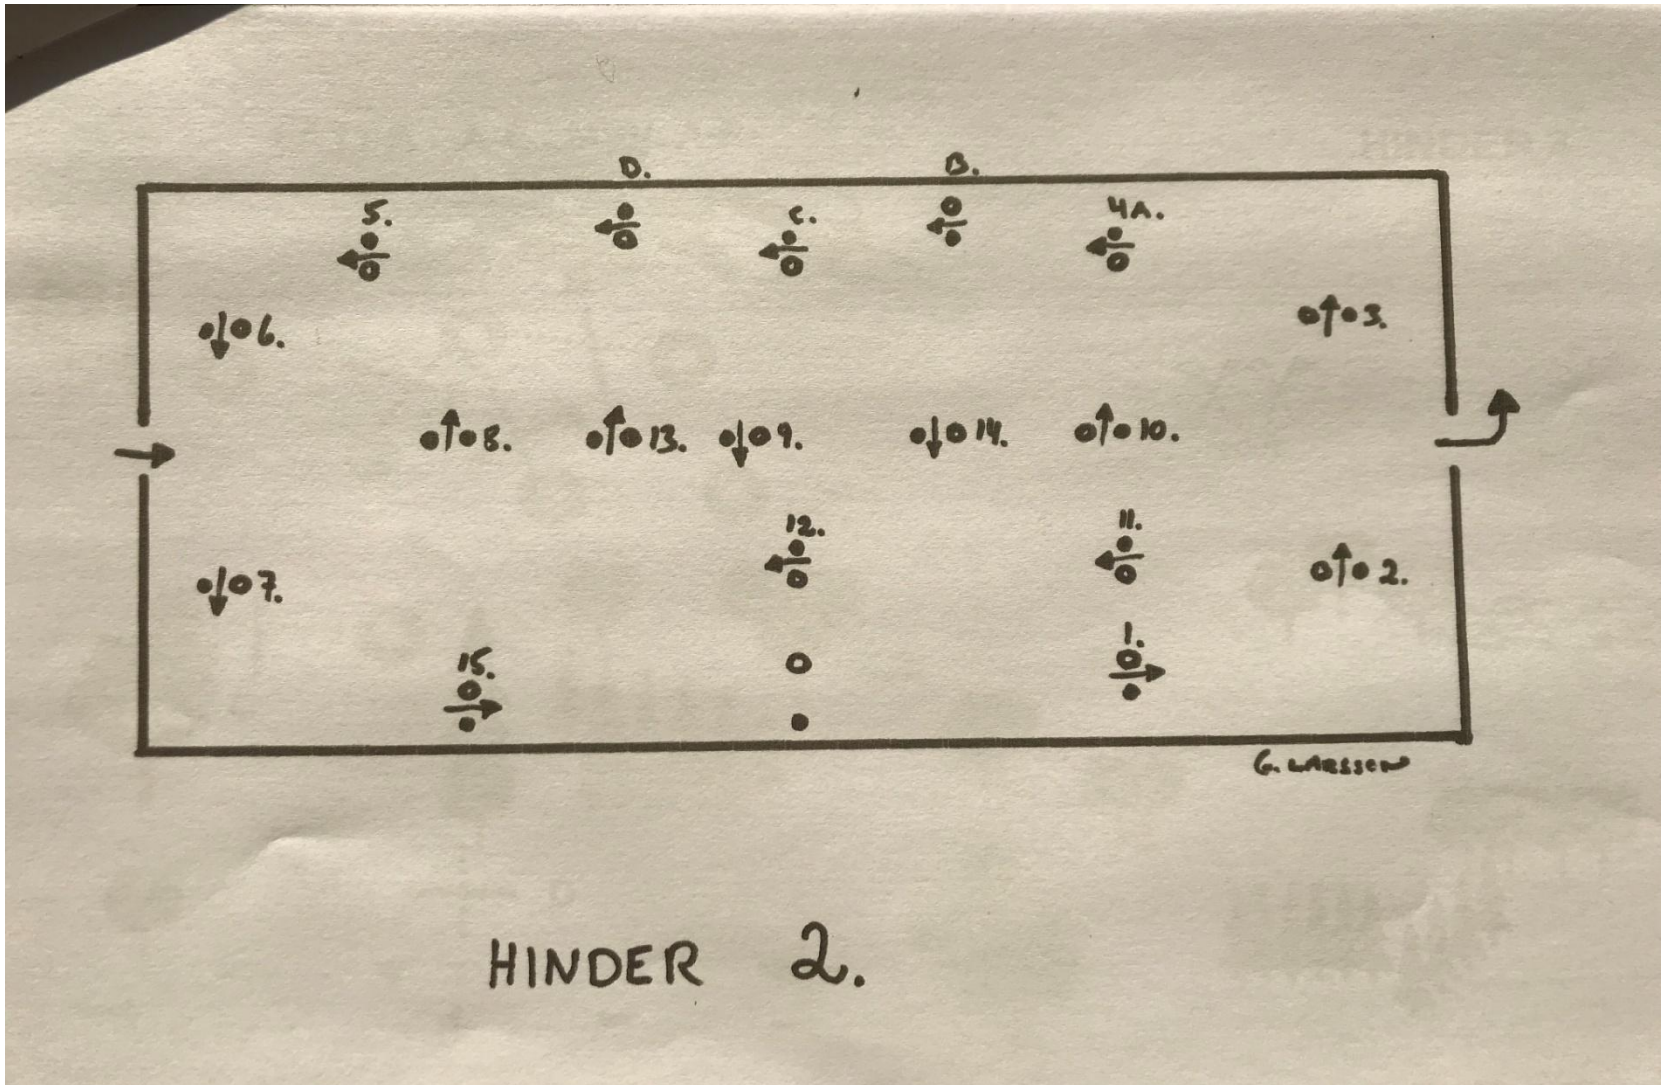 D.
B.
5.
C.
4A.
6.
3.
8.
13.
9.
14.
10.
12.
11.
7.
2.
1.
15.
G. LARSSON
HINDER 2.